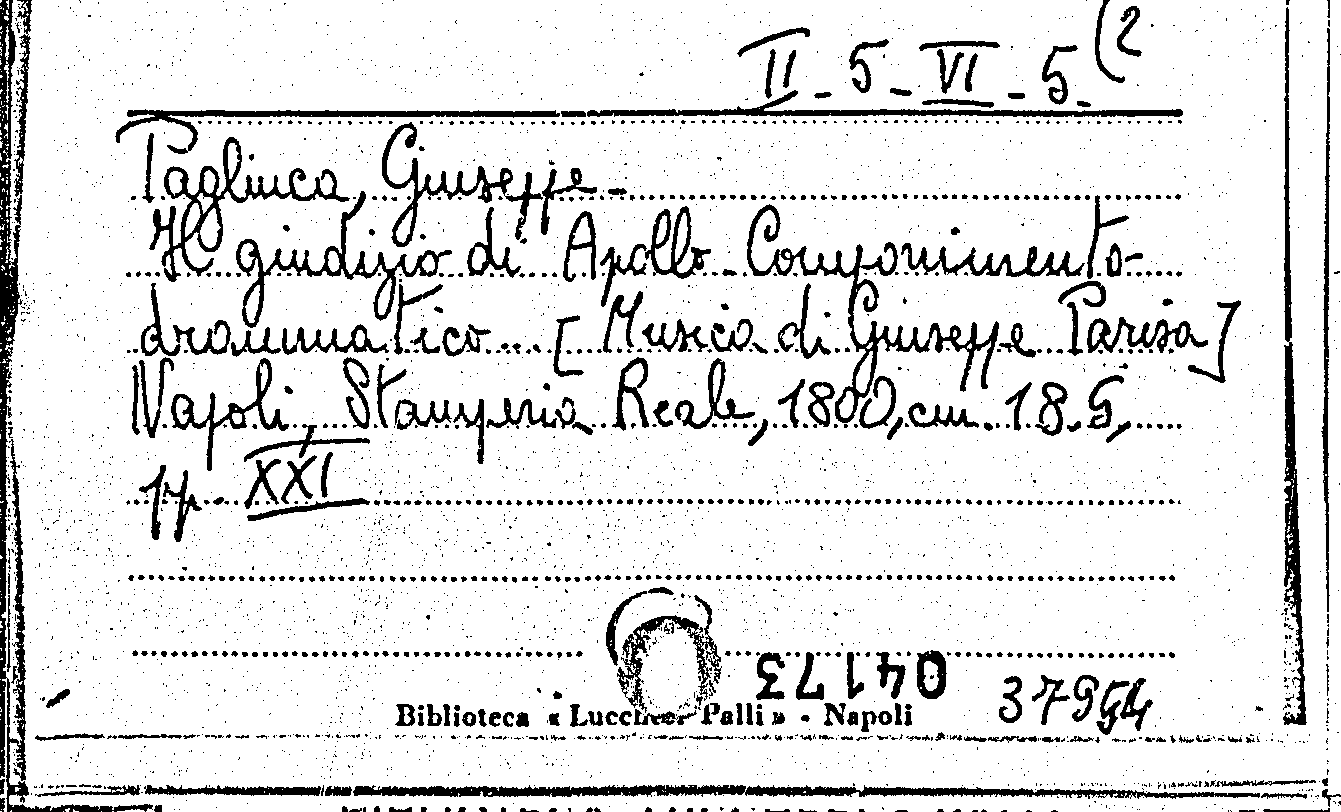 II - 5 - VI - 5 (2
Pagliuca, Giuseppe -
Il giudizio di Apollo - Componimento
drammatico... [Musica di Giuseppe Parisa]
Napoli, Stamperia Reale, 1800, cm. 18.5,
pp. XXI
04173
37954
Biblioteca « Lucchesi Palli » - Napoli